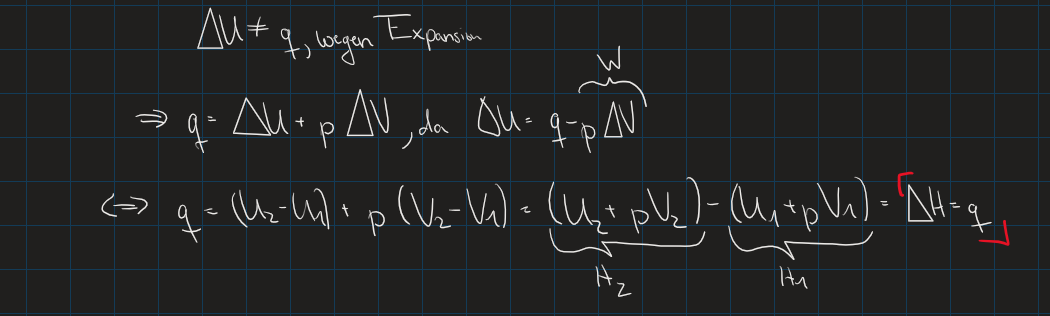 ΔU ≠ q, wegen Expansion
W
⇒ q = ΔU + p ΔV, da ΔU = q - p ΔV
⇔ q = (U₂ - U₁) + p (V₂ - V₁) = (U₂ + pV₂) - (U₁ + pV₁) = ΔH = q
H₂ H₁